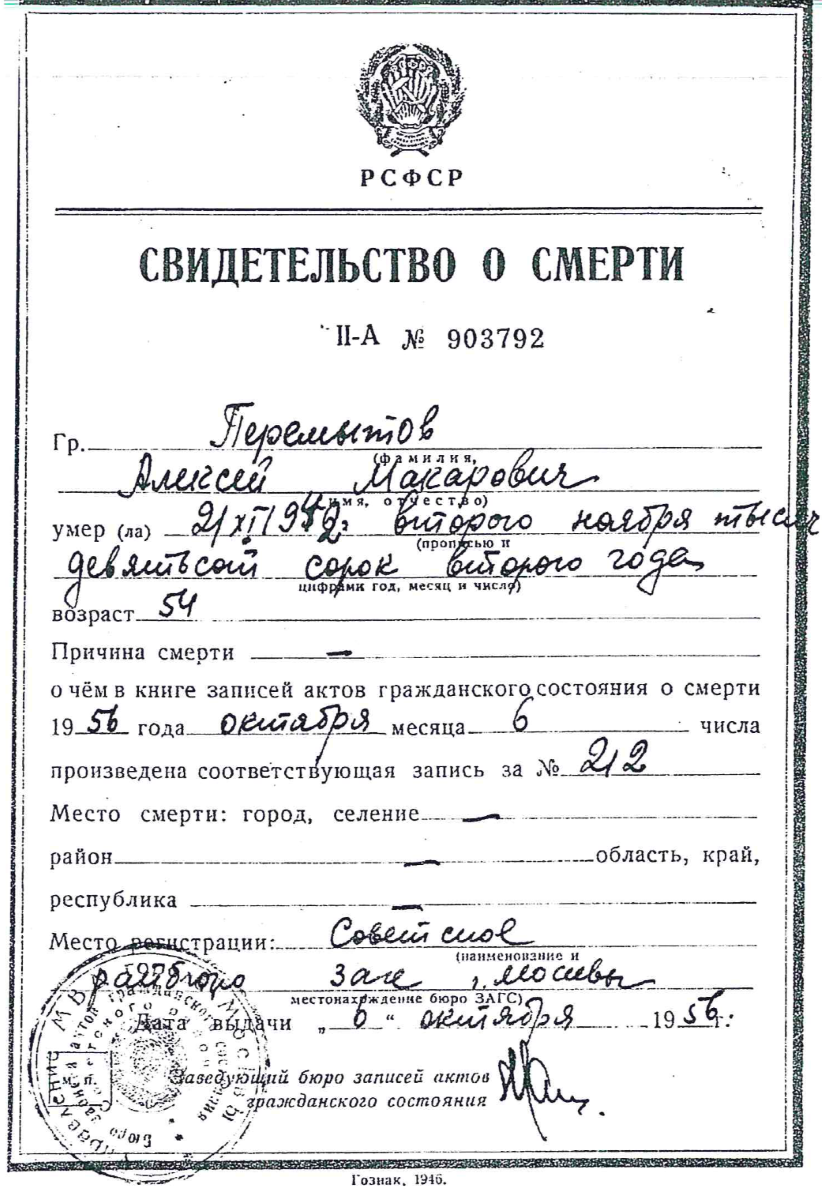 РСФСР
СВИДЕТЕЛЬСТВО О СМЕРТИ
II-А № 903792
Гр. Перемытов
(фамилия,
Алексей Макарович
имя, отчество)
умер (ла) 2/XI 1942г второго ноября тысяч
(прописью и
девятьсот сорок второго года
цифрами год, месяц и число)
возраст 54
Причина смерти —
о чём в книге записей актов гражданского состояния о смерти
1956 года октября месяца 6 числа
произведена соответствующая запись за № 212
Место смерти: город, селение —
район — область, край,
республика —
Место регистрации: Советское
(наименование и
райбюро загс г. Москвы
местонахождение бюро ЗАГС)
Дата выдачи „ 6 “ октября 1956г.
м. п.
Заведующий бюро записей актов
гражданского состояния
Гознак, 1946.